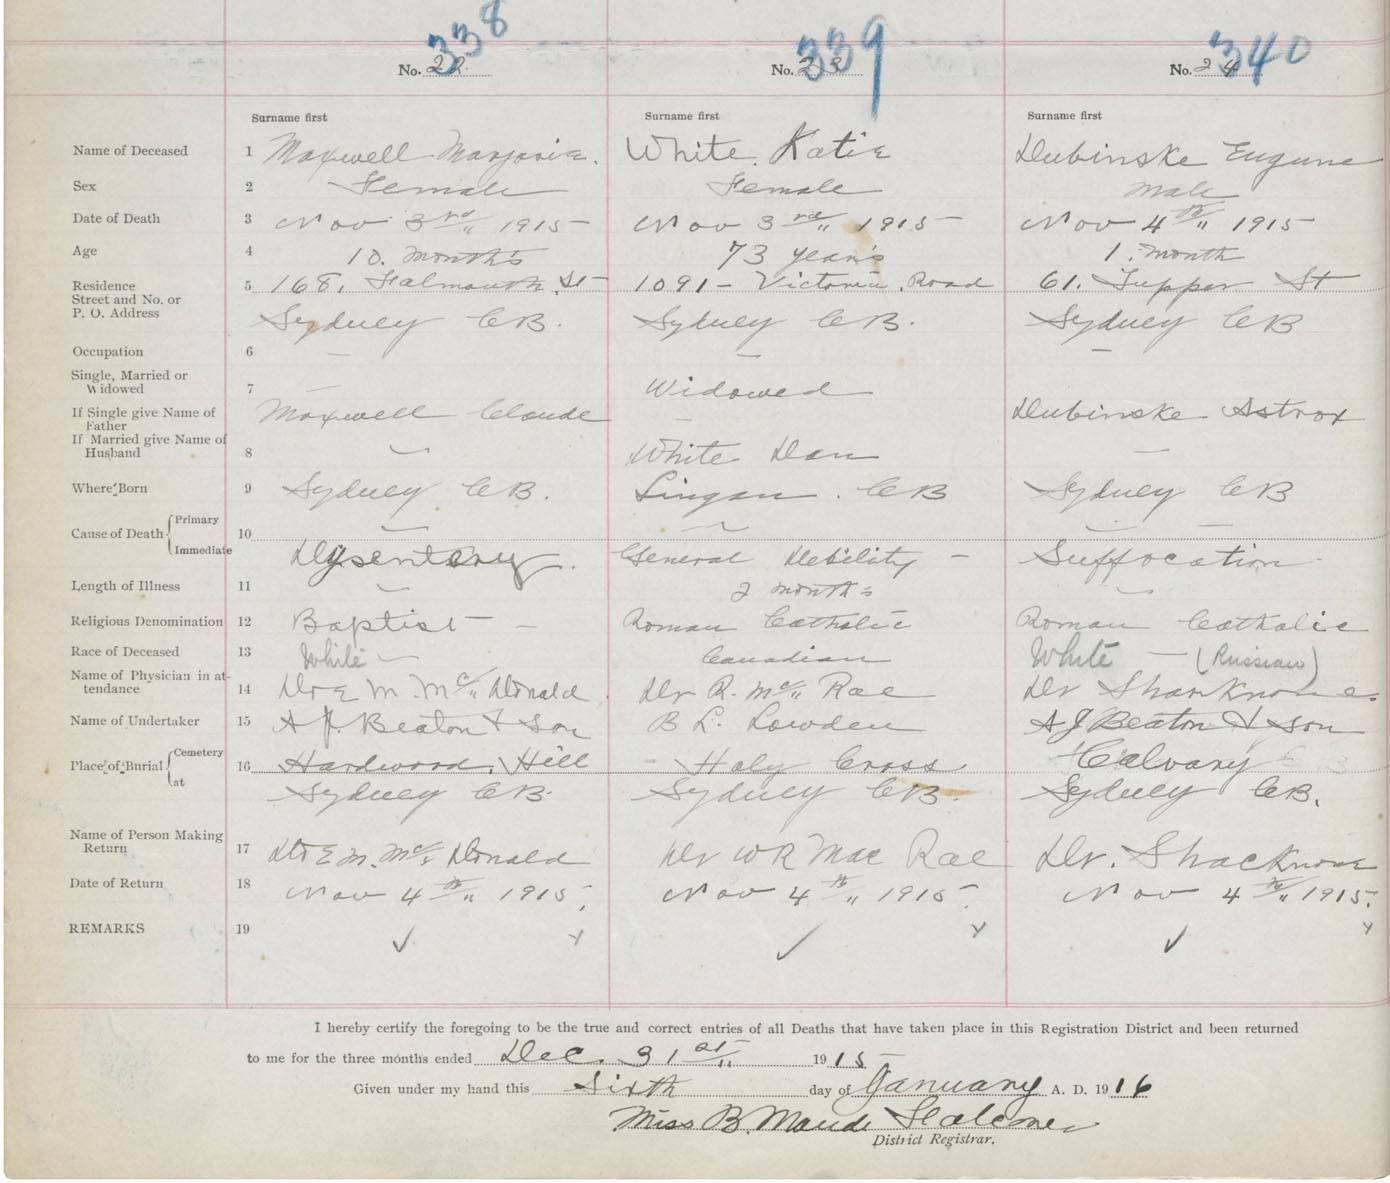 338 339 340
No. 22 No. 23 No. 24
Surname first Surname first Surname first
Name of Deceased 1 Maxwell Marjorie. White Katie Dubinske Eugune
Sex 2 Female Female Male
Date of Death 3 Nov 3rd 1915 Nov 3rd 1915 Nov 4th 1915
Age 4 10. months 73 years 1. month
Residence
Street and No. or 5 168, Falmouth St 1091 - Victoria Road 61. Tupper St
P. O. Address Sydney CB. Sydney CB. Sydney CB
Occupation 6 — — —
Single, Married or
Widowed 7 — Widowed
If Single give Name of Maxwell Claude — Dubinske
Father
If Married give Name of
Husband 8 — White Dan —
Where Born 9 Sydney CB. Lingan. CB Sydney CB
Cause of Death Primary 10 — — — —
Immediate Dysentery. General Debility - Suffocation
Length of Illness 11 — 2 months —
Religious Denomination 12 Baptist — - Roman Catholic Roman Catholic
Race of Deceased 13 White — Canadian White — (Russian)
Name of Physician in at-
tendance 14 Dr E M. Mc Donald Dr R. Mc Rae Dr
Name of Undertaker 15 A J. Beaton & Son B L. Lowden A J Beaton & Son
Place of Burial Cemetery 16 Hardwood Hill Holy Cross Calvary
at Sydney CB. Sydney CB. Sydney CB.
Name of Person Making
Return 17 Dr E M. Mc Donald Dr W R Mac Rae Dr.
Date of Return 18 Nov 4th 1915. Nov 4th 1915. Nov 4th 1915.
REMARKS 19 ✓ ✓ ✓
I hereby certify the foregoing to be the true and correct entries of all Deaths that have taken place in this Registration District and been returned
to me for the three months ended Dec. 31st 1915
Given under my hand this Sixth day of January A. D. 1916
Miss B. Maude Falconer
District Registrar.